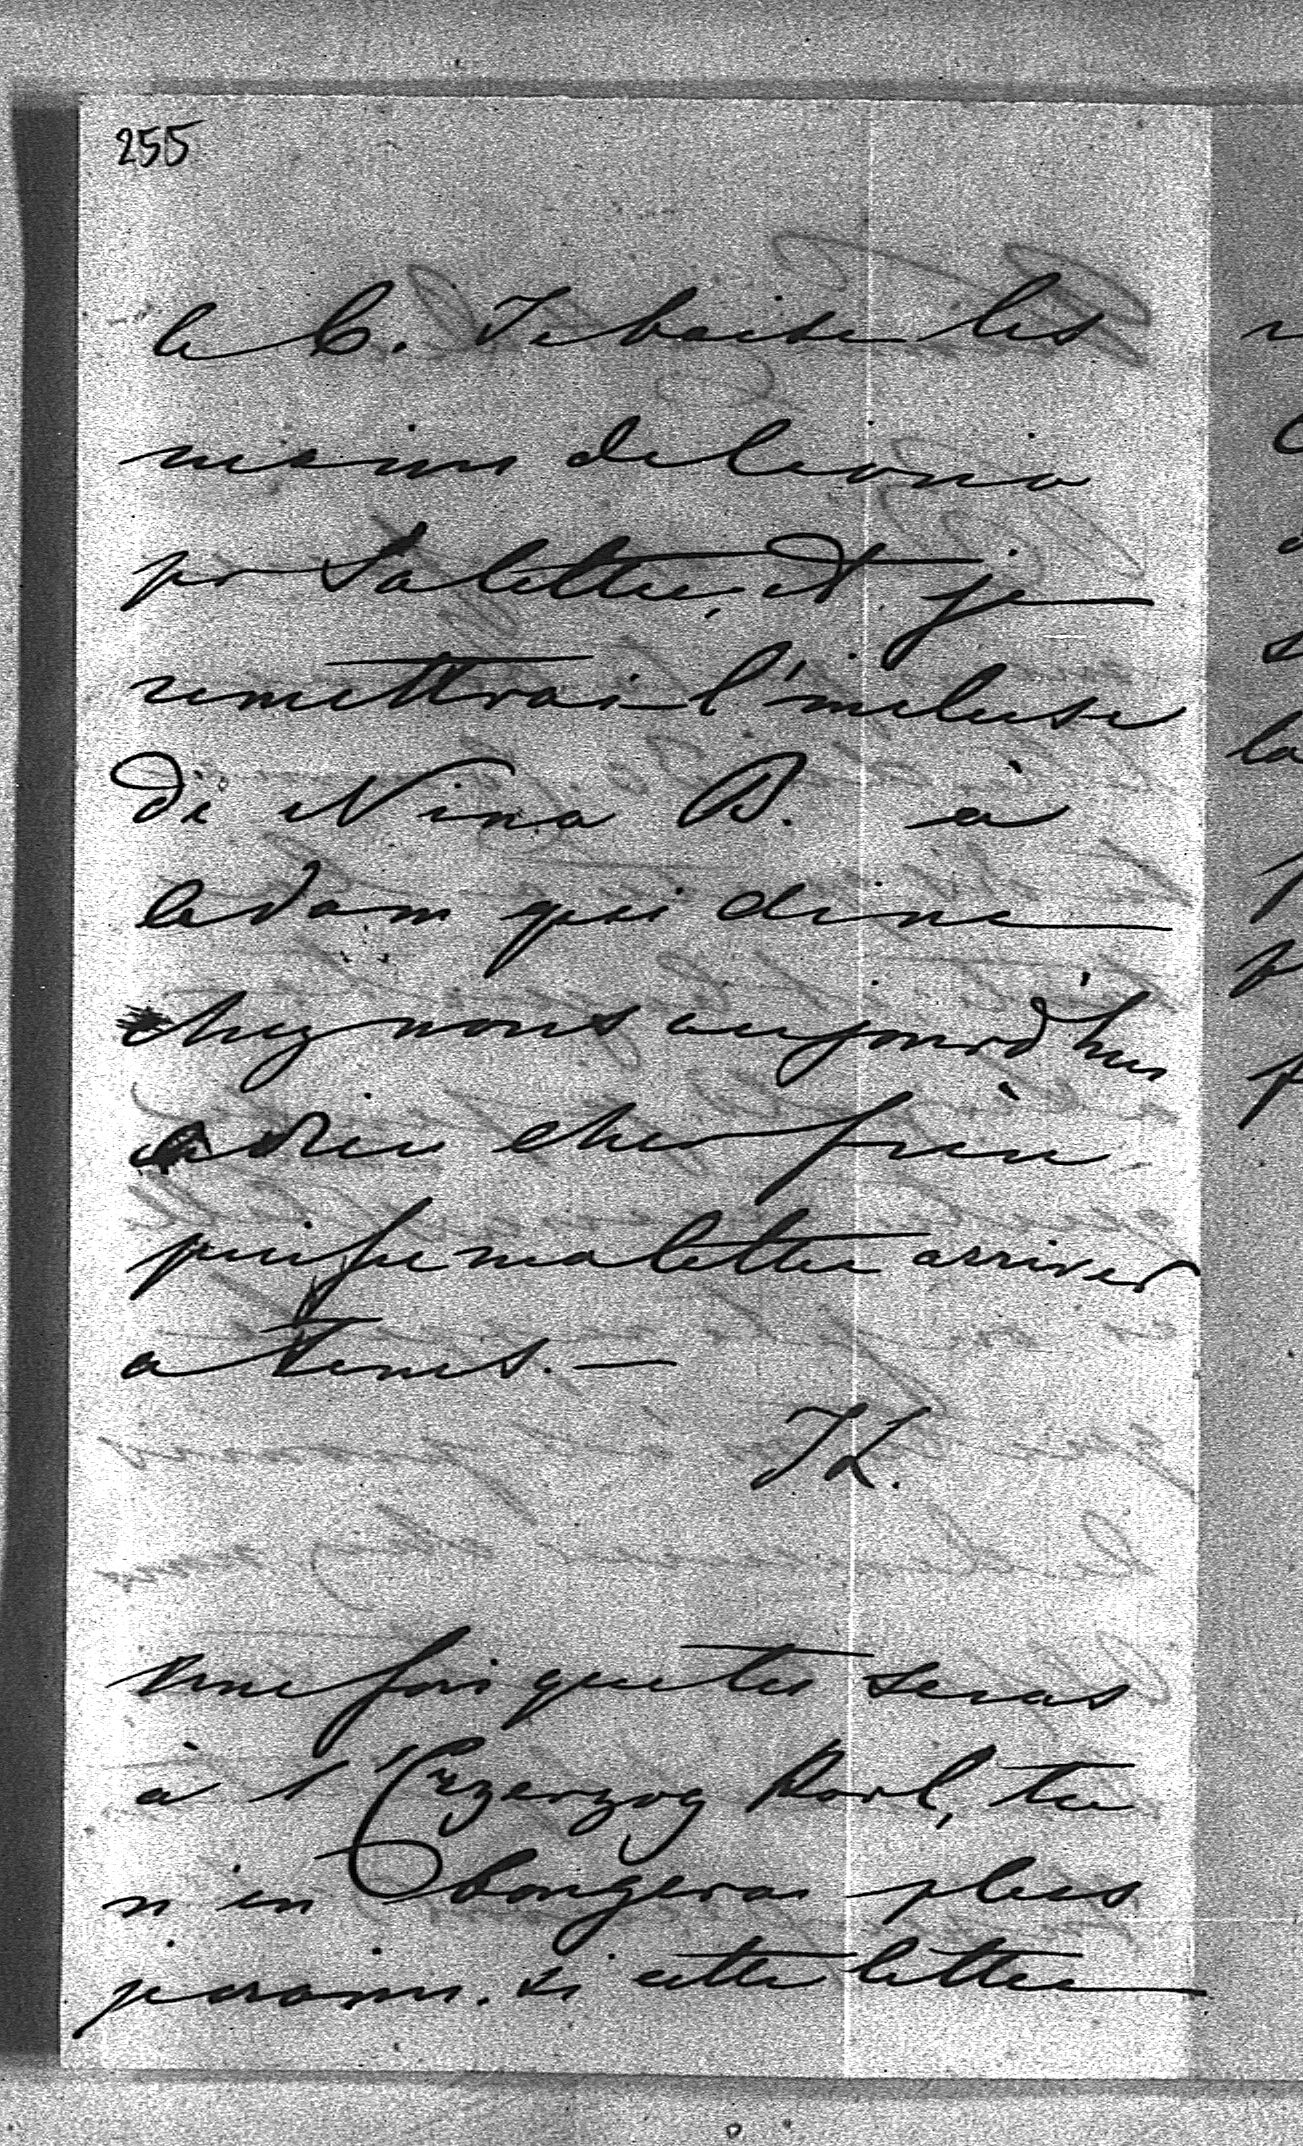 255
le C. Je baise les
mains de Leonio
pr Sa lettre, et je
remettrai l'incluse
de Nina B. à
Adam qui dine
chez nous aujourd'hui
adieu cher frère
puisse ma lettre arriver
a tems. —
JL.
Une fois que tu seras
à l'Erzerzog Karl, tu
n'en bougeras plus
j'esroins. Si cette lettre